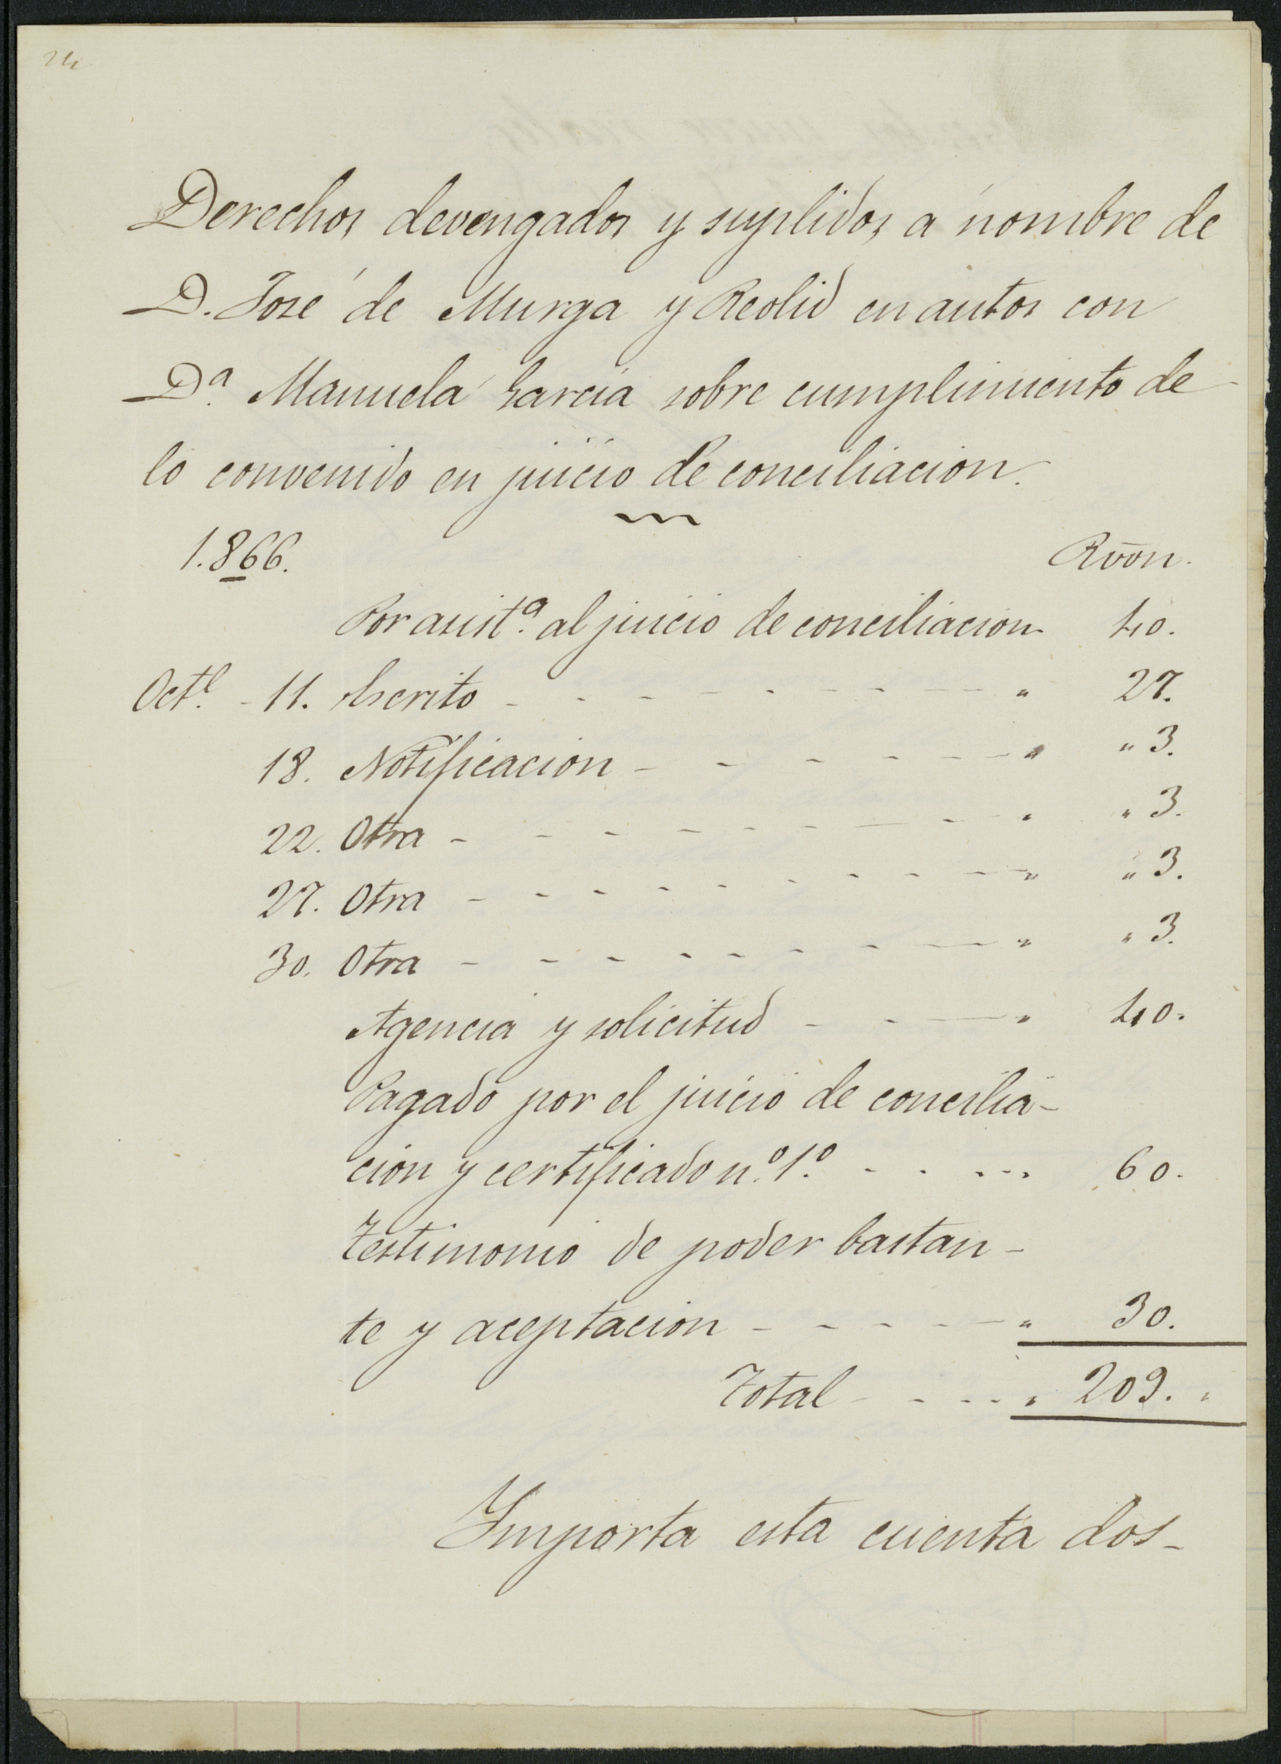 Derechos devengados y suplidos a nombre de
D. José de Murga y Reolid en autos con
D.ª Manuela Garcia sobre cumplimiento de
lo convenido en juicio de conciliacion.
1.866. Rvōn.
Por asist.ª al juicio de conciliacion 40.
Oct.e - 11. Escrito - - - - - - - - " 27.
18. Notificacion - - - - - - - " " 3.
22. Otra - - - - - - - - " " 3.
27. Otra - - - - - - - - - " " 3.
30. Otra - - - - - - - - " " 3.
Agencia y solicitud - - - " 40.
Pagado por el juicio de concilia-
cion y certificado n.º 1.º - - - - - 60.
Testimonio de poder bastan-
te y aceptacion - - - - - " 30.
Total - - - - " 209. "
Importa esta cuenta dos-